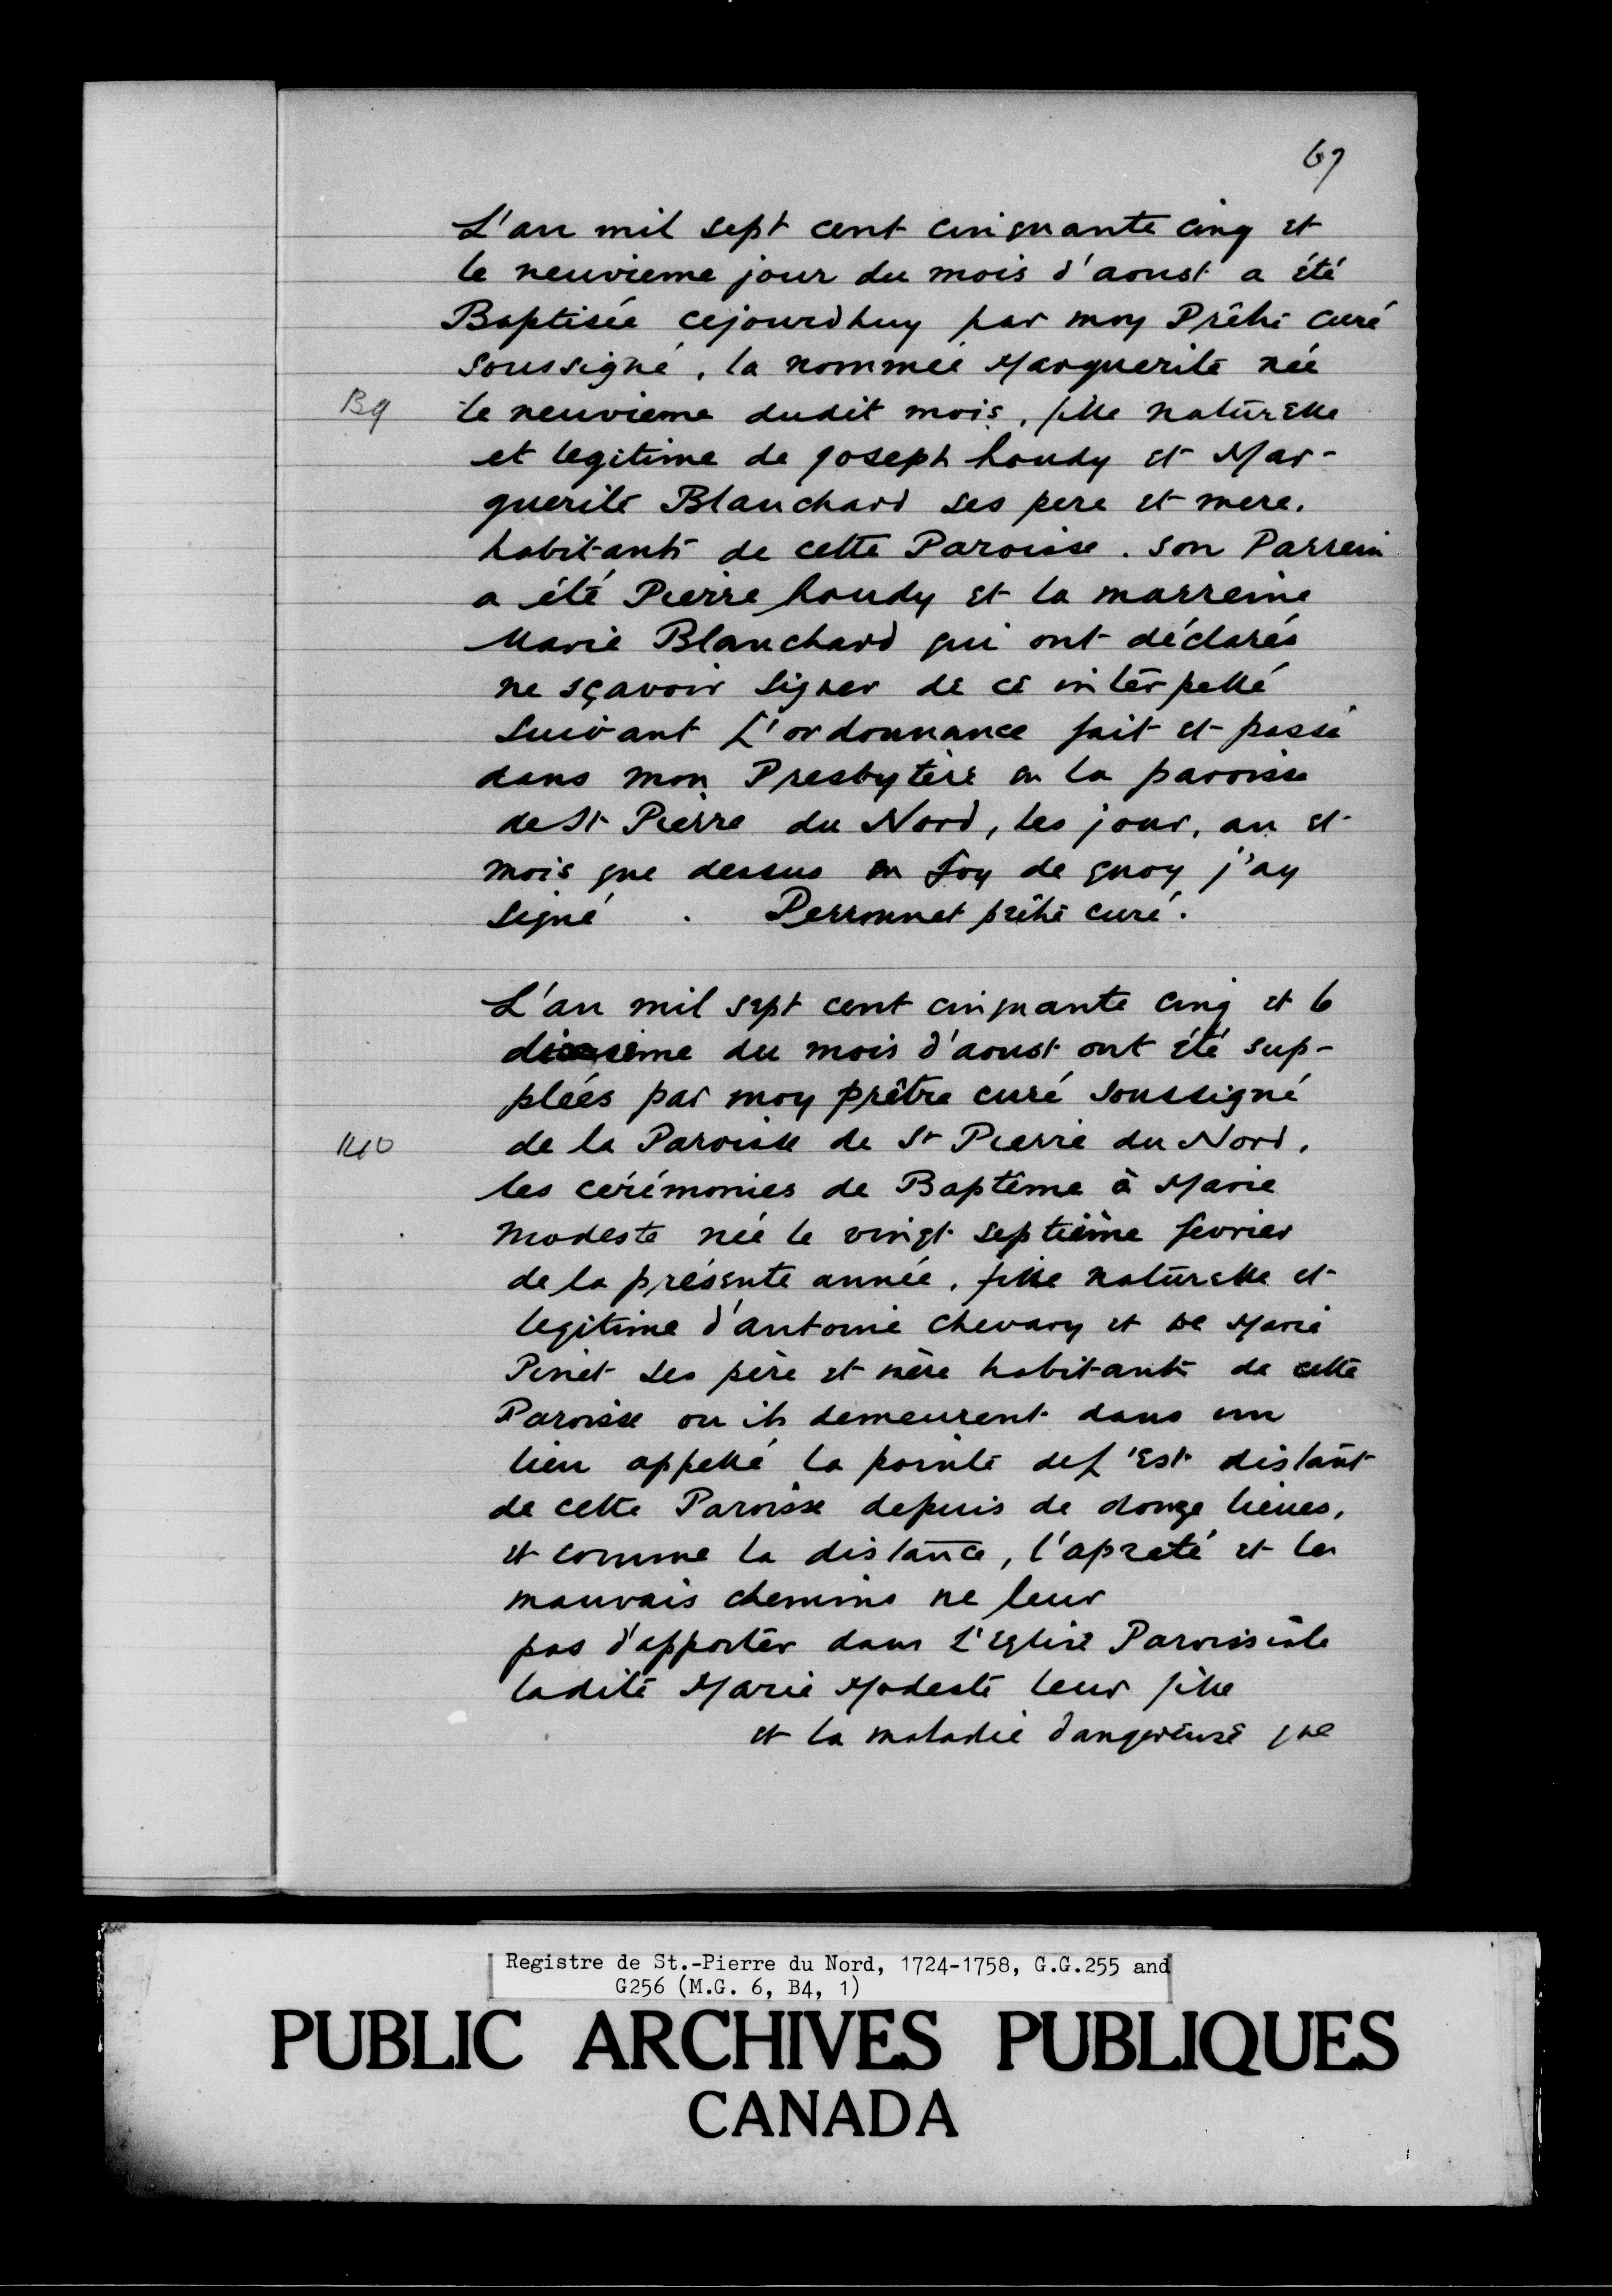 67
L'an mil sept cent cinquante cinq et
le neuvieme jour du mois d'aoust a été
Baptisée cejourdhuy par moy Prêtre curé
soussigné, la nommée Marguerite née
B9
le neuvieme dudit mois, fille naturelle
et legitime de joseph houdy et Mar-
guerite Blanchard ses pere et mere,
habitants de cette Paroisse. son Parrein
a été Pierre houdy et la marreine
Marie Blanchard qui ont déclarés
ne sçavoir signer de ce interpellé
suivant L'ordonnance fait et passé
dans mon Presbytère en la paroisse
de St Pierre du Nord, les jour, an et
mois que dessus en foy de quoy j'ay
signé . Perronnet prêtre curé.
L'an mil sept cent cinquante cinq et le
dixieme du mois d'aoust ont été sup-
pléés par moy prêtre curé soussigné
de la Paroisse de St Pierre du Nord,
les cérémonies de Baptême à Marie
Modeste née le vingt septième fevrier
de la présente année, fille naturelle et
legitime d'antoine chevary et de Marie
Pinet ses père et mère habitants de cette
Paroisse ou ils demeurent dans un
lieu appellé la pointe de L'Est distant
de cette Paroisse depuis de douze lieues,
et comme la distance, l'apreté et les
mauvais chemins ne leur
pas d'apporter dans L'Eglise Paroissiale
ladite Marie Modeste leur fille
et la maladie dangereuse que
Registre de St.-Pierre du Nord, 1724-1758, G.G.255 and
G256 (M.G. 6, B4, 1)
PUBLIC ARCHIVES PUBLIQUES
CANADA